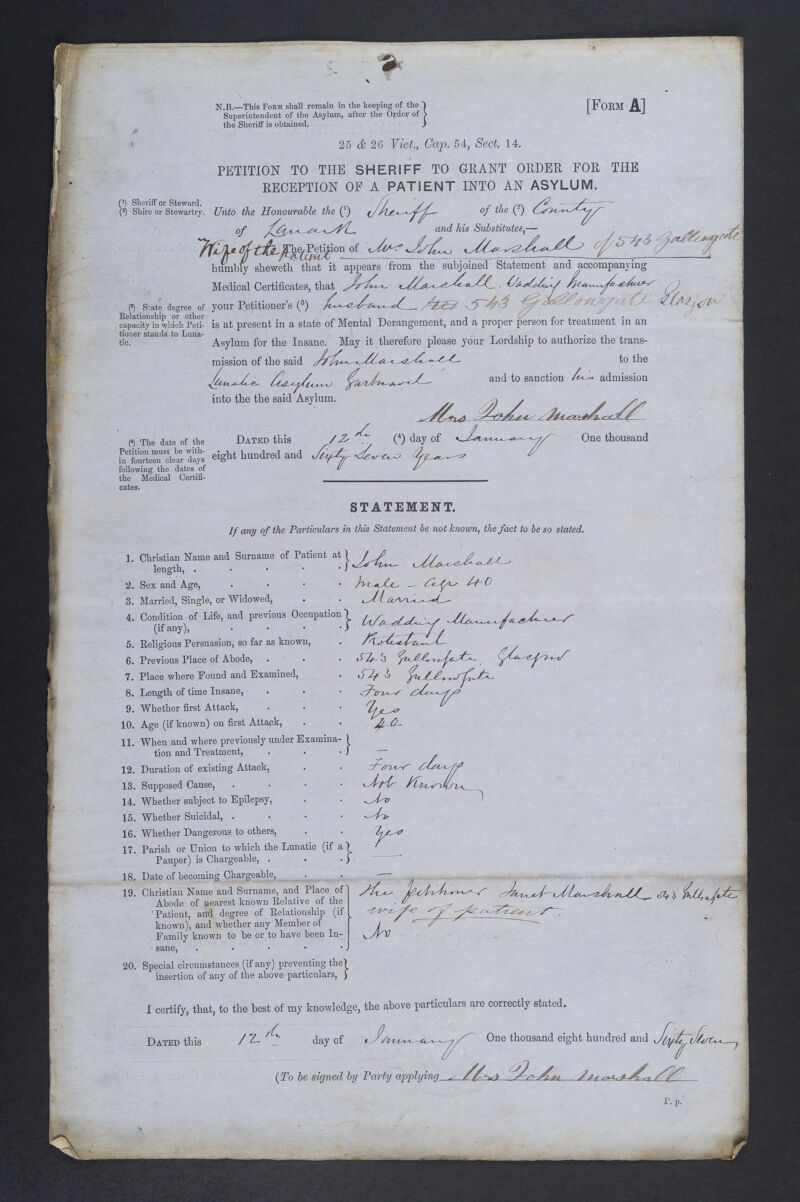 N.B.—This Form shall remain in the keeping of the
Superintendent of the Asylum, after the Order of
the Sheriff is obtained.
[Form A]
25 & 26 Vict., Cap. 54, Sect. 14.
PETITION TO THE SHERIFF TO GRANT ORDER FOR THE
RECEPTION OF A PATIENT INTO AN ASYLUM.
(1) Sheriff or Steward.
(2) Shire or Stewartry.
Unto the Honourable the (1) Sheriff of the (2) County
of Lanark and his Substitutes,—
Wife of the Patient
The Petition of Mrs John Marshall of 543 Gallowgate
humbly sheweth that it appears from the subjoined Statement and accompanying
Medical Certificates, that John Marshall. Wadding Manufacturer
(3) State degree of
Relationship or other
capacity in which Peti-
tioner stands to Luna-
tic.
your Petitioner's (3) husband 543 Gallowgate Glasgow
is at present in a state of Mental Derangement, and a proper person for treatment in an
Asylum for the Insane. May it therefore please your Lordship to authorize the trans-
mission of the said John Marshall to the
Lunatic Asylum Gartnavel and to sanction his admission
into the the said Asylum.
Mrs John Marshall
(4) The date of the
Petition must be with-
in fourteen clear days
following the dates of
the Medical Certifi-
cates.
Dated this 12th (4) day of January One thousand
eight hundred and Sixty Seven Years
STATEMENT.
If any of the Particulars in this Statement be not known, the fact to be so stated.
1. Christian Name and Surname of Patient at
length, . . . . . John Marshall
2. Sex and Age, . . . . Male – Age 40
3. Married, Single, or Widowed, . . Married
4. Condition of Life, and previous Occupation
(if any), . . . . Wadding Manufacturer
5. Religious Persuasion, so far as known, . Protestant
6. Previous Place of Abode, . . . 543 Gallowgate. Glasgow
7. Place where Found and Examined, . 543 Gallowgate
8. Length of time Insane, . . . Four days
9. Whether first Attack, . . . Yes
10. Age (if known) on first Attack, . . 40
11. When and where previously under Examina-
tion and Treatment, . . . —
12. Duration of existing Attack, . . Four days
13. Supposed Cause, . . . . Not Known
14. Whether subject to Epilepsy, . . No
15. Whether Suicidal, . . . . No
16. Whether Dangerous to others, . . Yes
17. Parish or Union to which the Lunatic (if a
Pauper) is Chargeable, . . . —
18. Date of becoming Chargeable, . . —
19. Christian Name and Surname, and Place of
Abode of nearest known Relative of the
Patient, and degree of Relationship (if
known), and whether any Member of
Family known to be or to have been In-
sane, . . . . .
The petitioner Janet Marshall – 543 Gallowgate
wife of patient.
No
20. Special circumstances (if any) preventing the
insertion of any of the above particulars,
I certify, that, to the best of my knowledge, the above particulars are correctly stated.
Dated this 12th day of January One thousand eight hundred and Sixty Seven
(To be signed by Party applying Mrs John Marshall
P. p.